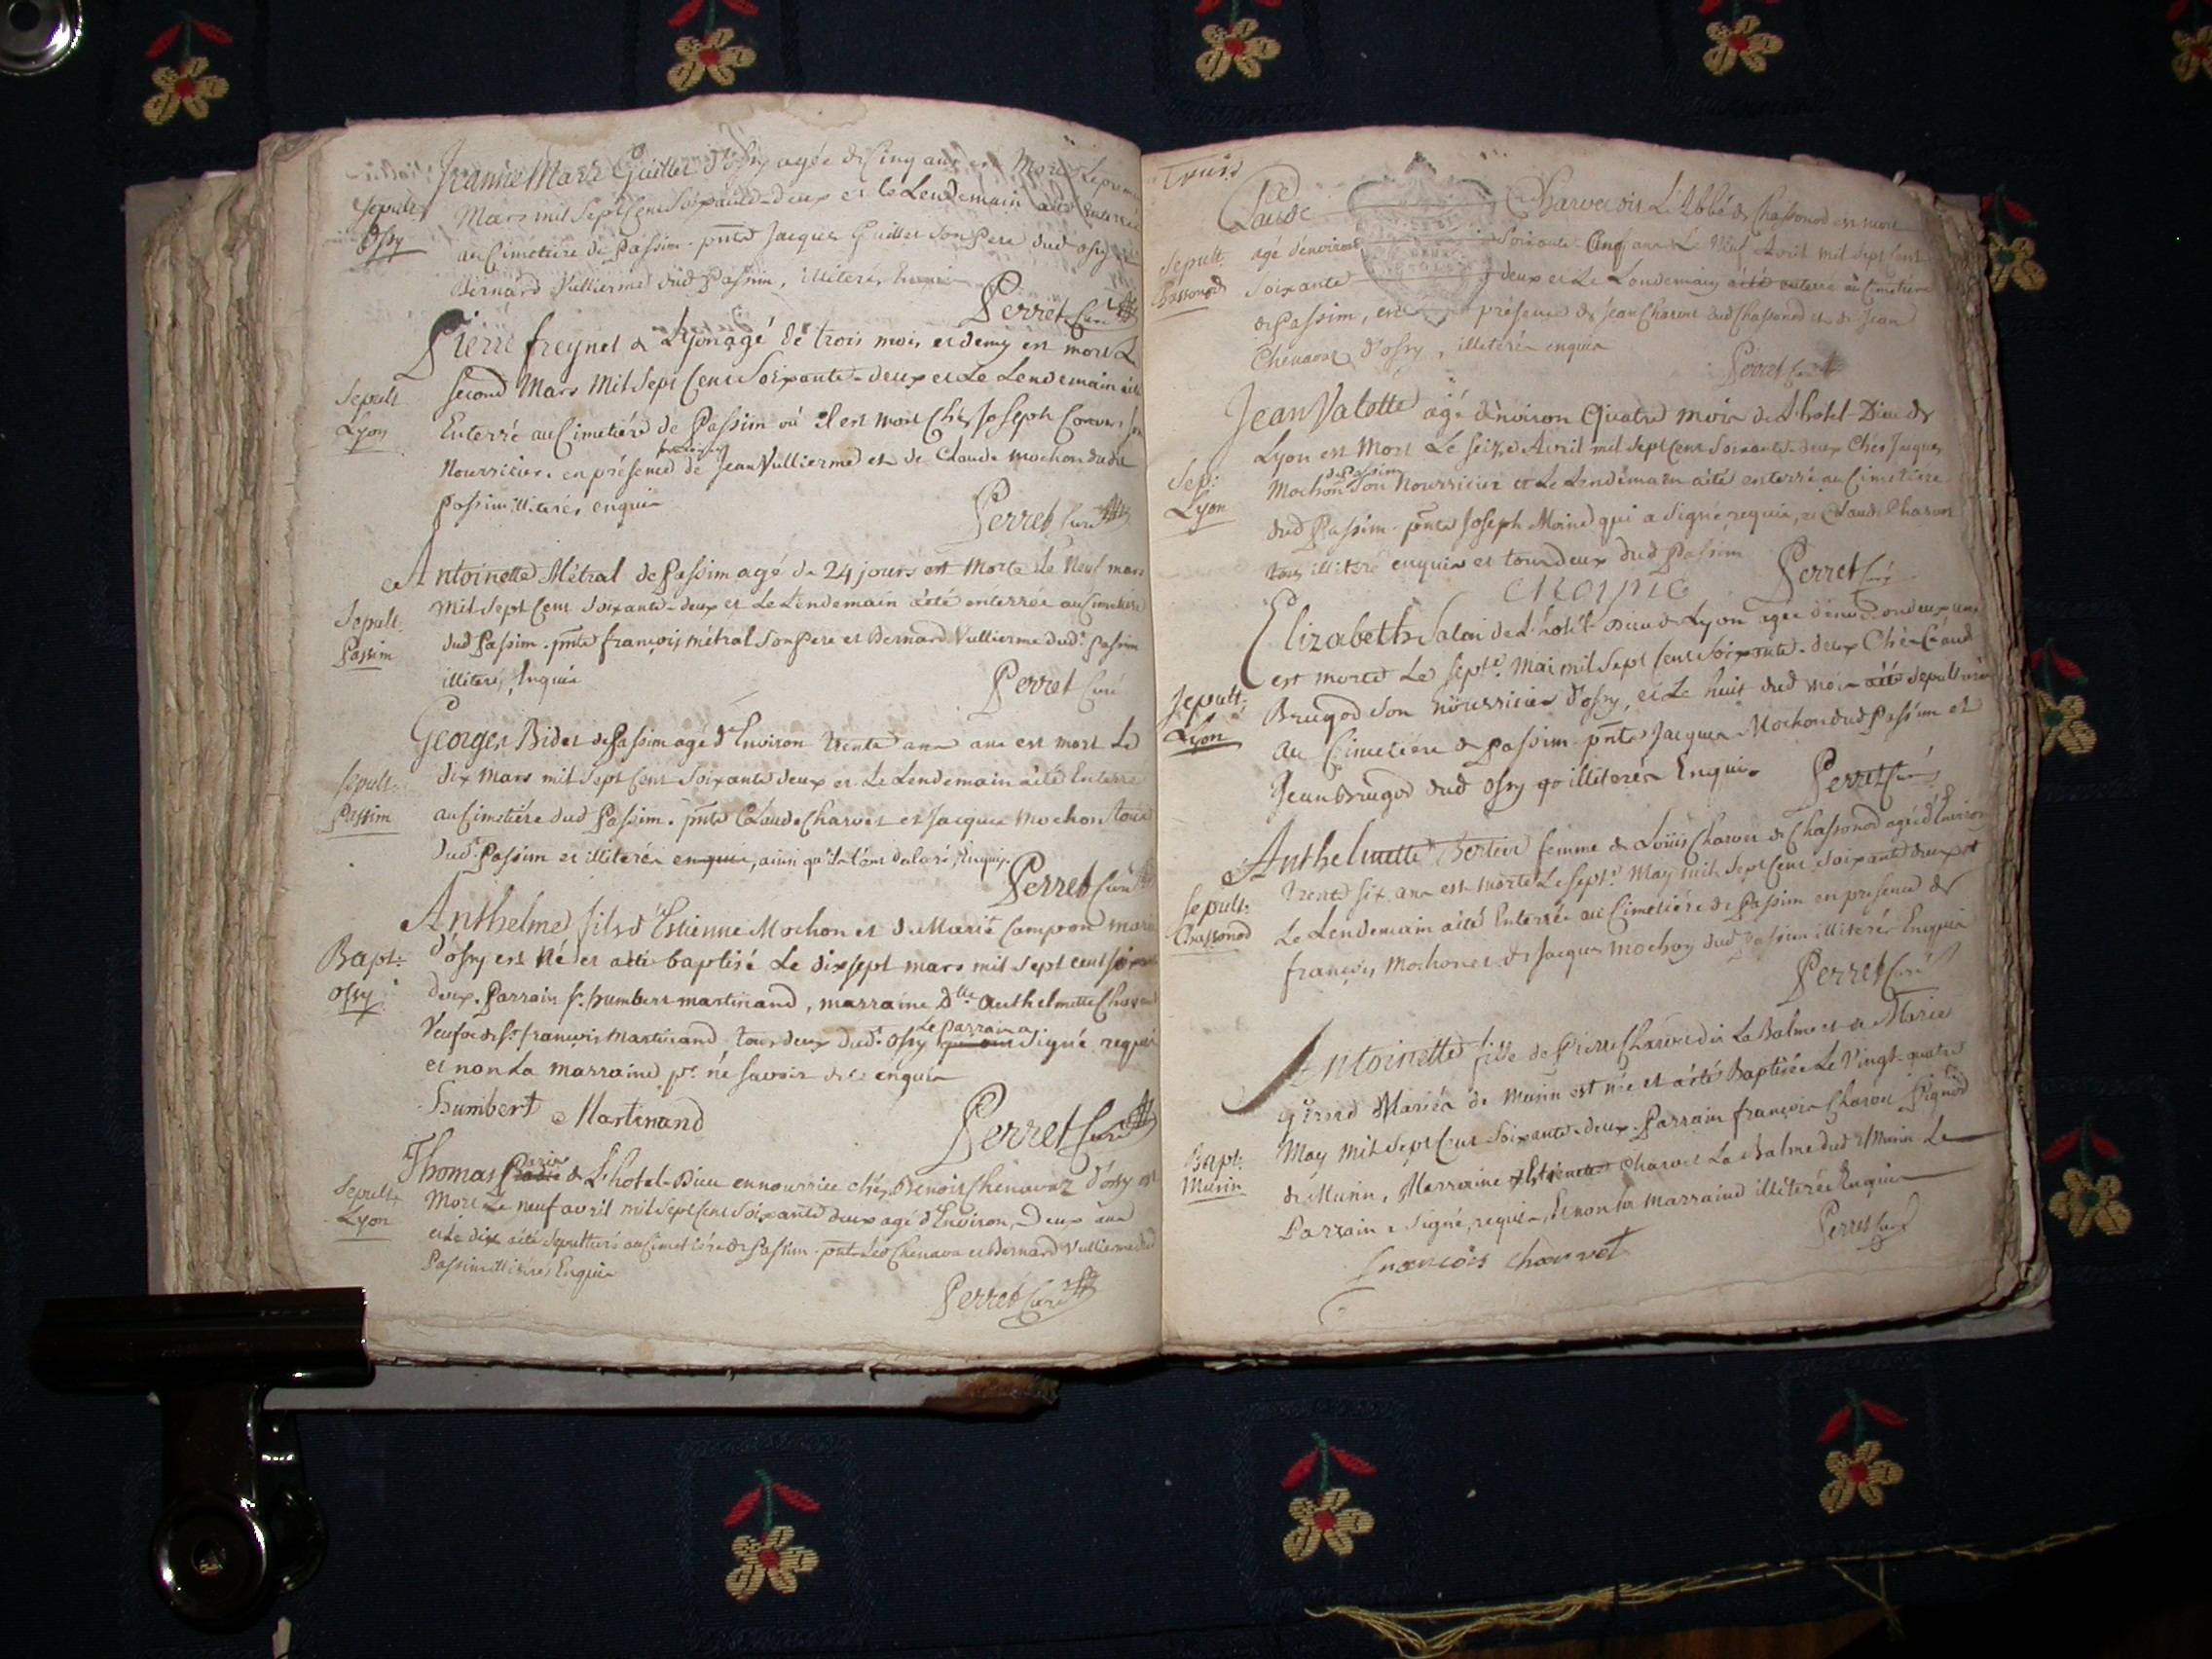 Jeanne Marie Guillet d'ossy agée de Cinq ans est Morte Le premier
Sepult:
Ossy
Mars mil Sept Cent Soixante-deux et le Lendemain a été Enterrée
au Cimetiére de Passim. pnts Jacques Guillet Son Pere dud ossy et
Bernard Vullierme dud Passim, illiteres Enquis
Perret Curé
Pierre freynet de Lyon agé de trois mois et demy est mort Le
Sepult
Lyon
Second Mars Mil Sept Cent Soixante-deux et Le Lendemain a été
Enterré au Cimetiére de Passim où il est mort Chés Joseph
Nourricier. en présence de Jean Vullierme et de Claude Mochon dudit
Passim illiterés enquis
Perret Curé
Antoinette Métral de Passim agé de 24 jours est Morte Le Neuf mars
Sepult.
Passim
Mil Sept Cent Soixante-deux et Le Lendemain a été enterrée au Cimetiére
dud Passim. pnts françois métral Son Pere et Bernard Vullierme dud. Passim
illiteres, Enquis
Perret Curé
Georges Bidet de Passim agé d'Environ trente ans ans est mort Le
Sepult:
Passim
dix Mars mil Sept Cent Soixante deux et Le Lendemain a été Enterré
au Cimetiére dud Passim. pnts Claude Charvet et Jacques Mochon tous
dud. Passim et illiterés enquis, ainsi qu'ils l'ont declaré, Enquis.
Perret Curé
Anthelme fils d'Estienne Mochon et de Marie Campron mariés
Bapt:
ossy
d'ossy est Né et a été baptisé Le dix sept mars mil Sept cent soixante
deux. Parrain Sr. humbert martinand, marraine Dlle Anthelmette
Veufve de Sr. françois Martinand tous deux dud. ossy Le Parrain a signé requis
et non La marraine pr. ne savoir de ce enquis
humbert Martinand
Perret Curé
Thomas de L'hotel-Dieu en nourrice chés Benoit Chenavaz d'ossy est
Sepult:
Lyon
Mort Le neuf avril mil Sept Cent Soixante deux agé d'Environ Deux ans
et Le dix a été Sepulturé au Cimetiére de Passim. pnts Chenavaz et Bernard Vullierme dud
Passim illiteres Enquis
Perret Curé
Trois
Claude Charvet dit L'Abbé de Chassonod est mort
Sepult:
Chassonod
agé d'environ Soixante Cinq ans Le Neuf Avril mil Sept Cent
Soixante deux et Le Lendemain a été enterré au Cimetiére
de Passim, en présence de Jean Charvet dud Chassonod et de Jean
Chenavaz d'ossy, illiterés enquis
Perret Curé
Jean Valotte agé d'environ Quatre mois de L'hotel-Dieu de
Sep:
Lyon
Lyon est Mort Le Seize Avril mil Sept Cent Soixante-deux Chés Jacques
Mochon de Passim Son Nourricier et Le Lendemain a été enterré au Cimetiére
dud Passim. pnts Joseph Moine qui a Signé requis, et Claude Charvet
illiteré enquis et tous deux dud Passim
Perret Curé
Elizabeth Salai de L'hotel-Dieu de Lyon agée d'environ deux ans
Sepult:
Lyon
est morte Le Sept. Mai mil Sept Cent Soixante-deux Chés Claude
Brugod Son Nourricier d'ossy, et Le huit dud mois a été Sepulturée
au Cimetiére de Passim pnts Jacques Mochon dud Passim et
Jean Brugod dud ossy illiterés Enquis
Perret Curé
Anthelmette Bertier femme de Loüis Charvet de Chassonod agée d'Environ
Sepult:
Chassonod
trente six ans est morte Le Sept. May mil Sept Cent Soixante deux et
Le Lendemain a été Enterrée au Cimetiére de Passim en presence de
françois Mochon et de Jacques Mochon dud Passim illiterés Enquis
Perret Curé
Antoinette fille de Pierre Charvet dit La Balme et de Marie
Bapt:
Musin
Mariés de Musin est née et a été Baptisée Le Vingt-quatre
May Mil Sept Cent Soixante-deux. Parrain françois Charvet
de Musin, Marraine Charvet La Balme dud Musin Le
Parrain a Signé, requis, Et non La marraine illiterée Enquis
Perret Curé
françois charvet